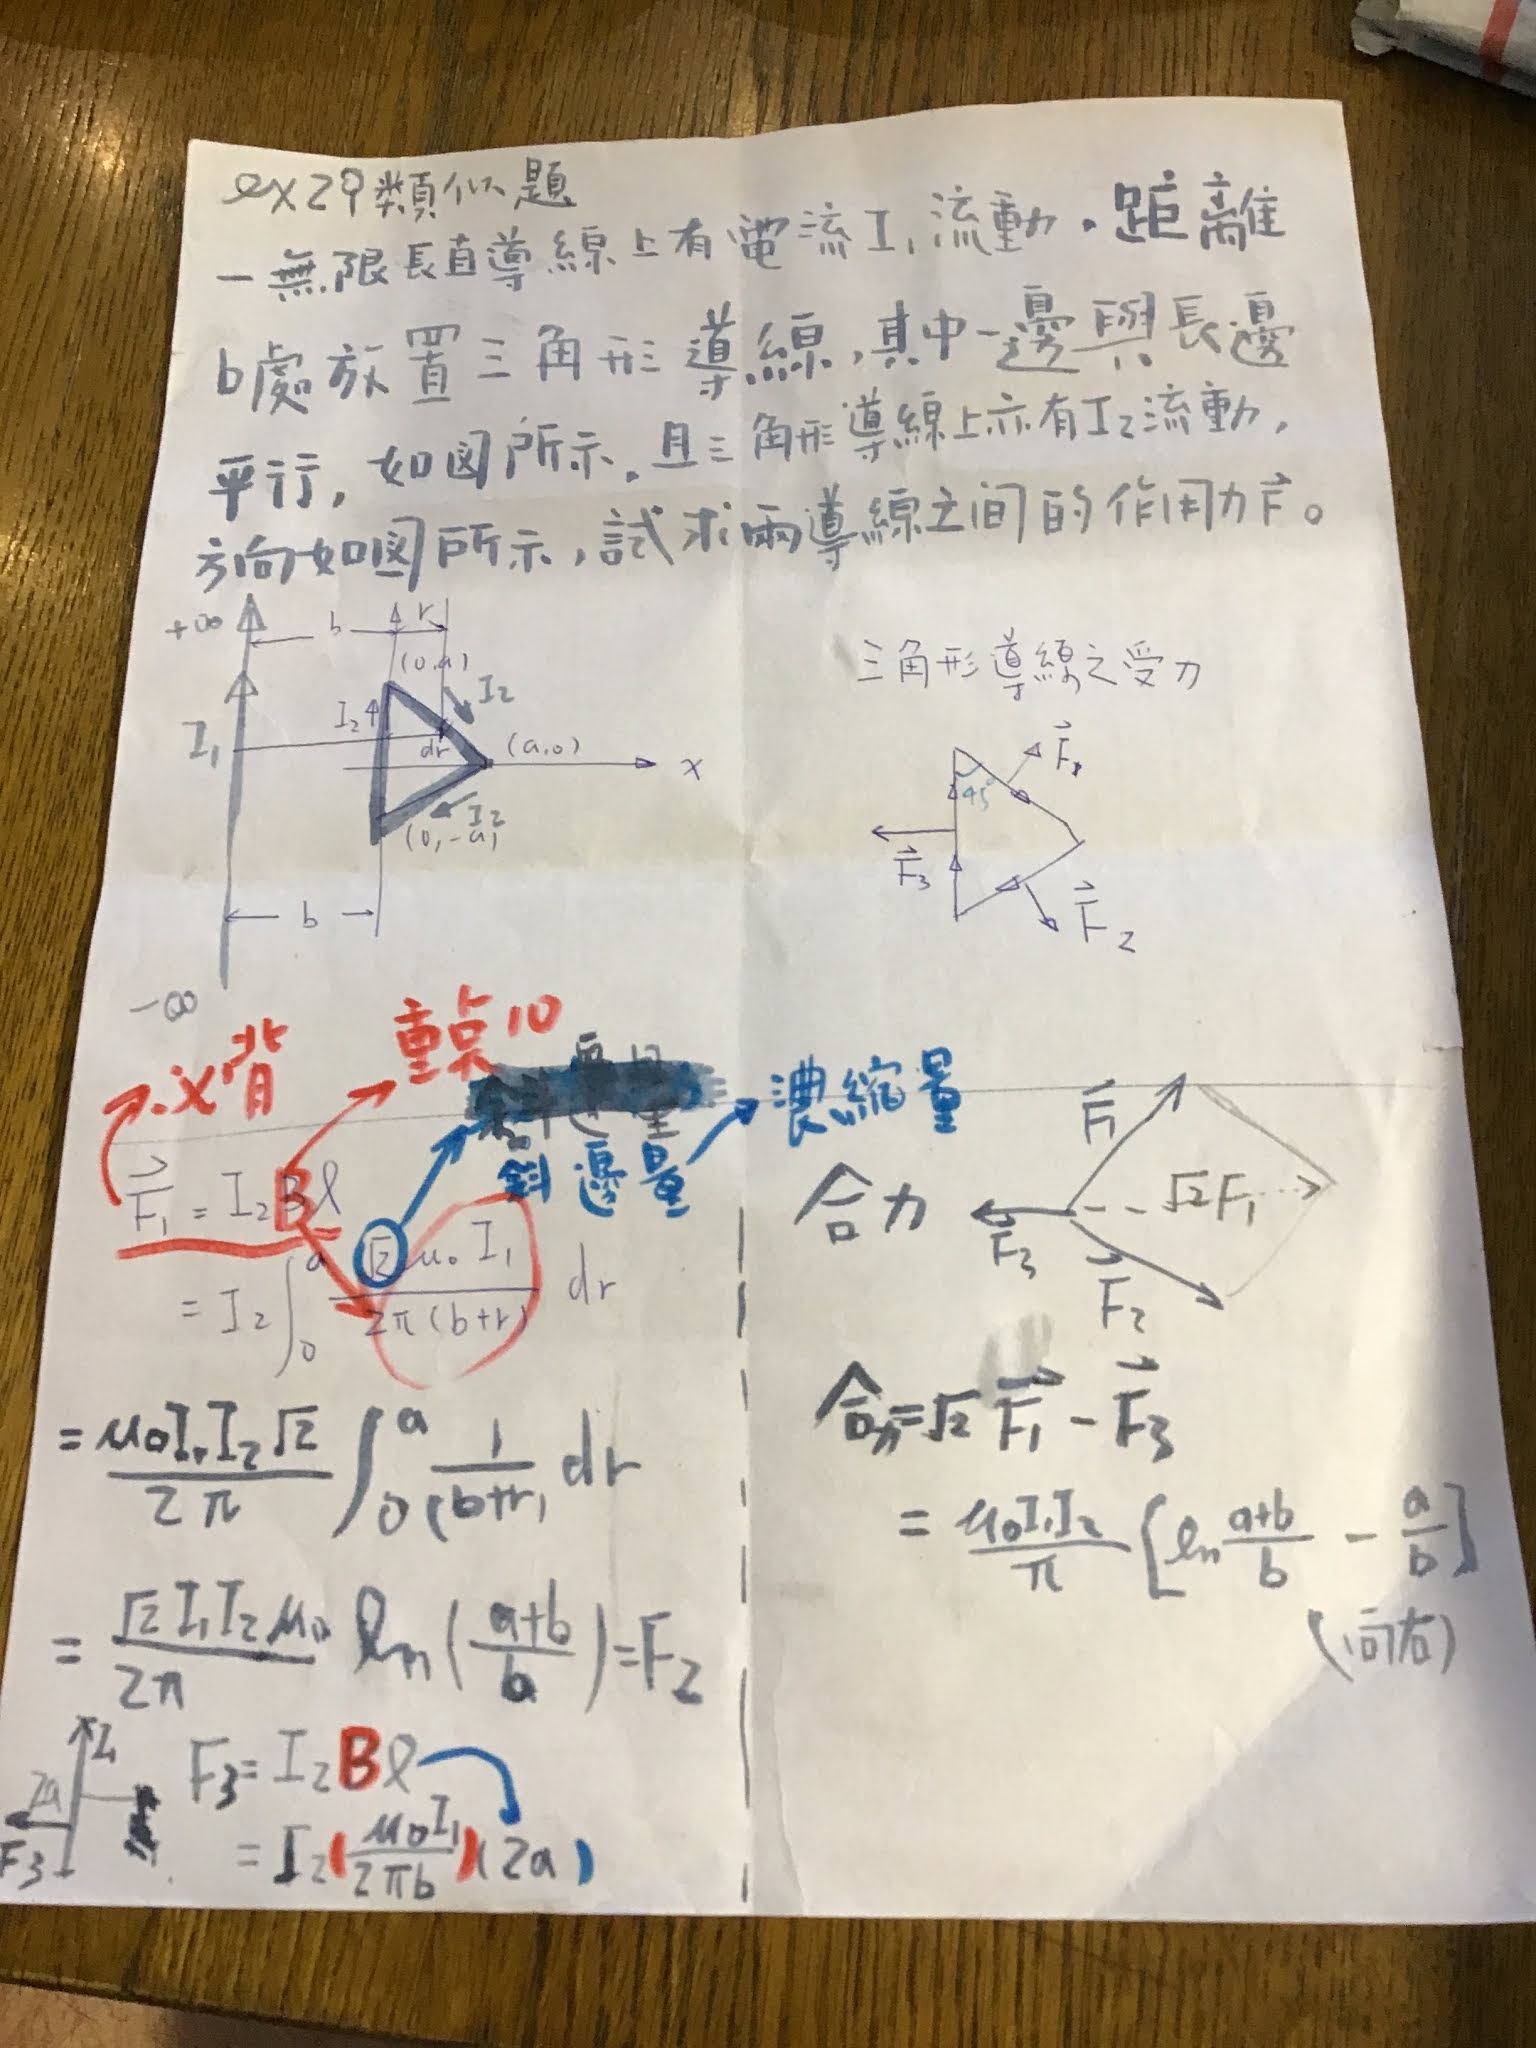 ex29類似題
一無限長直導線上有電流I₁流動。距離
b處放置三角形導線,其中一邊與長邊
平行,如図所示。且三角形導線上亦有I₂流動,
方向如図所示,試求兩導線之間的作用力F⃗。
+∞
b
r
(0,a)
I₂
I₂
I₁
dr
(a,0)
x
I₂
(0,-a)
b
-∞
三角形導線之受力
F⃗₁
45°
F⃗₃
F⃗₂
必背
重点10
斜邊量
濃縮量
F⃗₁ = I₂Bℓ
= I₂∫₀ᵃ √2 μ₀ I₁ / 2π(b+r) dr
= μ₀I₁I₂√2 / 2π ∫₀ᵃ 1/(b+r) dr
= √2 I₁I₂μ₀ / 2π ln(a+b / b) = F₂
I₁
2a
F₃
F₃ = I₂Bℓ
= I₂(μ₀I₁ / 2πb)(2a)
合力
F⃗₁
√2F₁
F⃗₃
F⃗₂
合力=√2 F⃗₁ - F⃗₃
= μ₀I₁I₂ / π [ln a+b / b - a / b]
(向右)